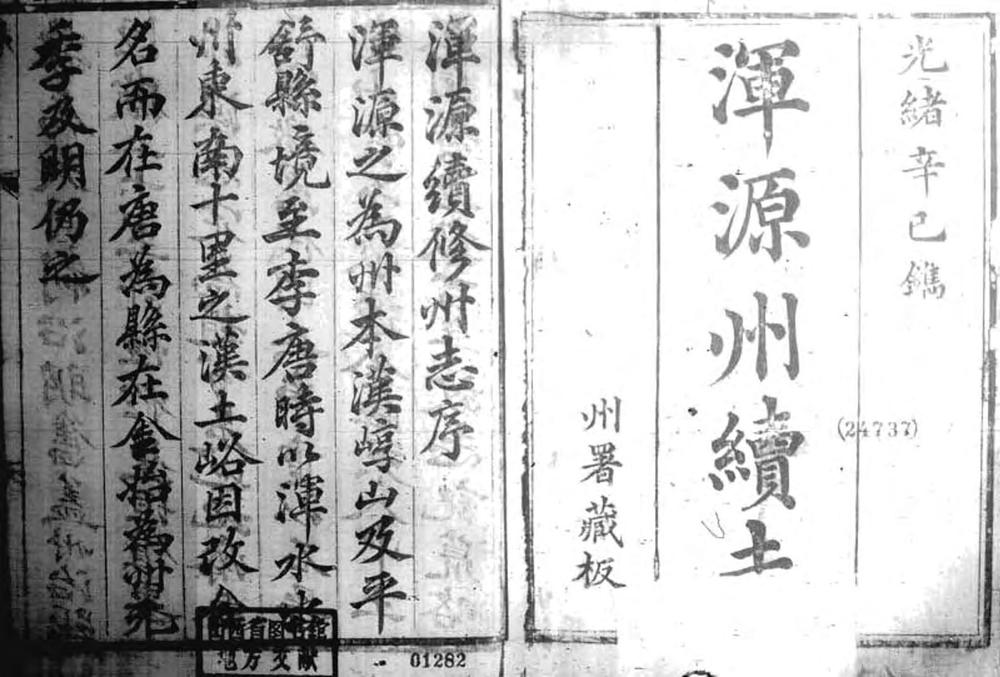 光緒辛巳鐫
渾源州續
(24737)
州署藏板
渾源續修州志序
渾源之為州本漢崞山及平
舒縣境至李唐時以渾水
州東南十里之漢土峪因改今
名而在唐為縣在金始為州元
季及明仍之
地方文献
01282